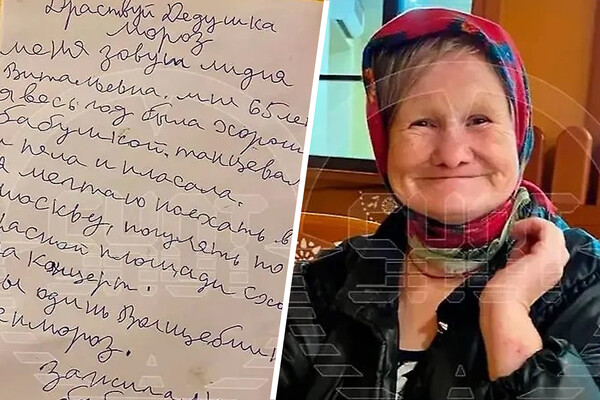 Драствуй Дедушка
мороз
меня зовут лидия
Витальевна. мне 65 ле
я весь год была хорош
бабушкой. танцевал
и пела и плясала.
я мечтаю поехать в
москву, погулять по
расной площади схо
на концерт.
ы один
мороз.